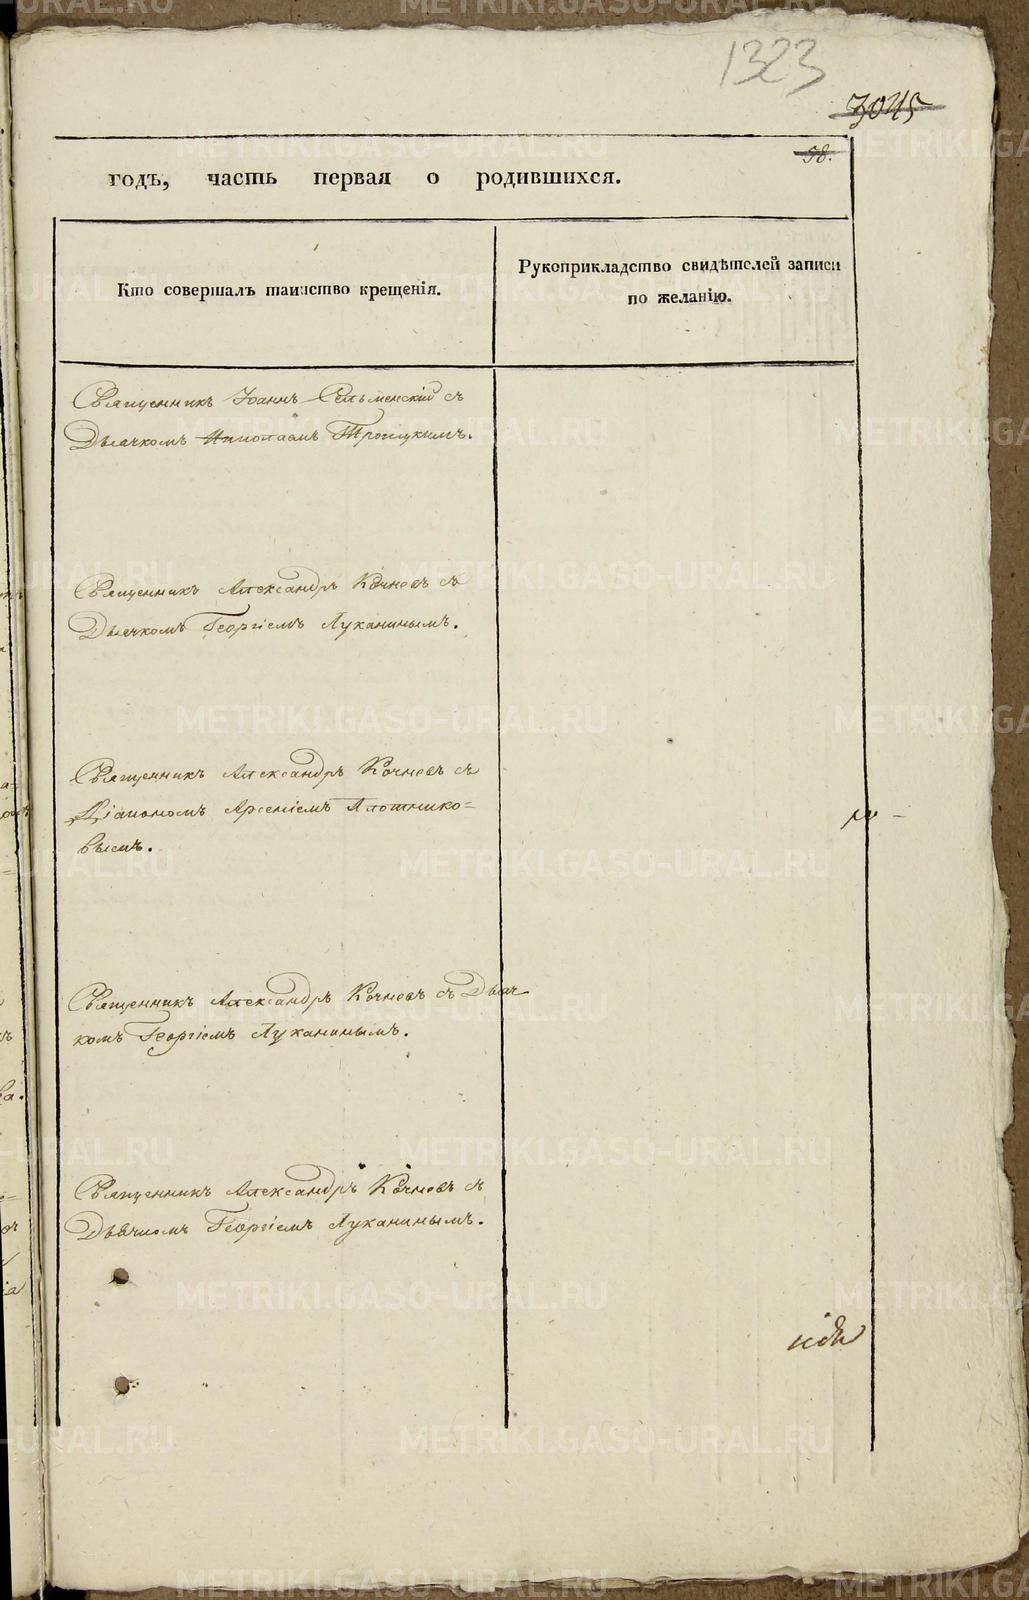 1323
3045
58.
годъ, часть первая о родившихся.
Кто совершалъ таинство крещенія.
Рукоприкладство свидѣтелей записи
по желанію.
Священникъ Іоаннъ Сельменскій съ
Дьячкомъ Николаемъ Троицкимъ.
Священникъ Александръ Кочневъ съ
Дьячкомъ Георгіемъ Луканинымъ.
Священникъ Александръ Кочневъ съ
Діакономъ Арсеніемъ Плотнико=
вымъ.
Священникъ Александръ Кочневъ съ Дьяч
комъ Георгіемъ Луканинымъ.
Священникъ Александръ Кочневъ съ
Дьячкомъ Георгіемъ Луканинымъ.
METRIKI.GASO-URAL.RU